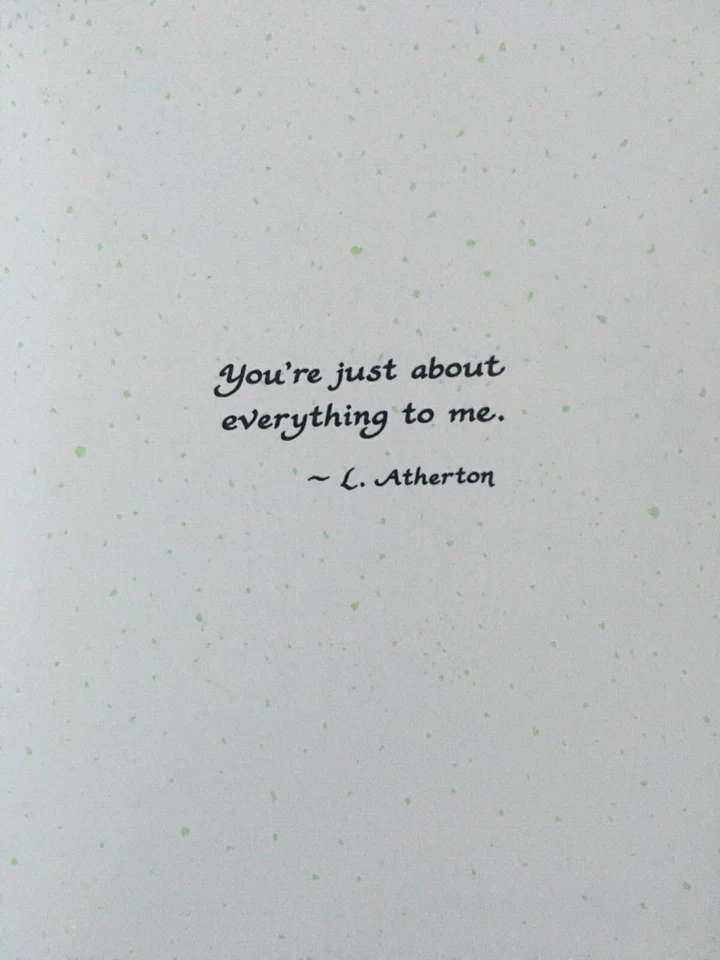 You're just about
everything to me.
~ L. Atherton